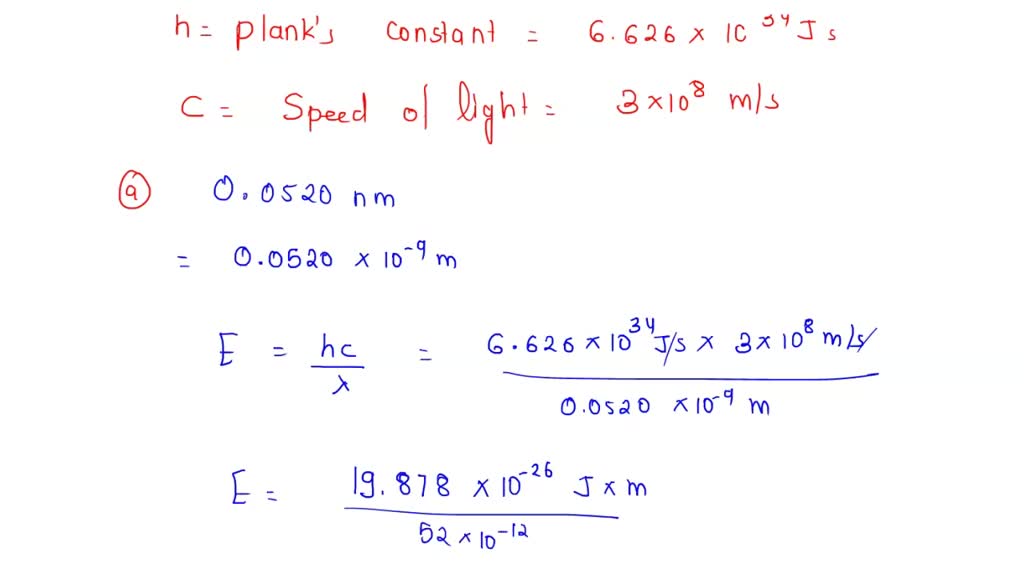 h = plank's constant = 6.626 × 10^34 J s
C = Speed of light = 3 × 10^8 m/s
(a) 0.0520 nm
= 0.0520 × 10^-9 m
E = hc/λ = 6.626 × 10^34 J/s × 3 × 10^8 m/s / 0.0520 × 10^-9 m
E = 19.878 × 10^-26 J × m / 52 × 10^-12